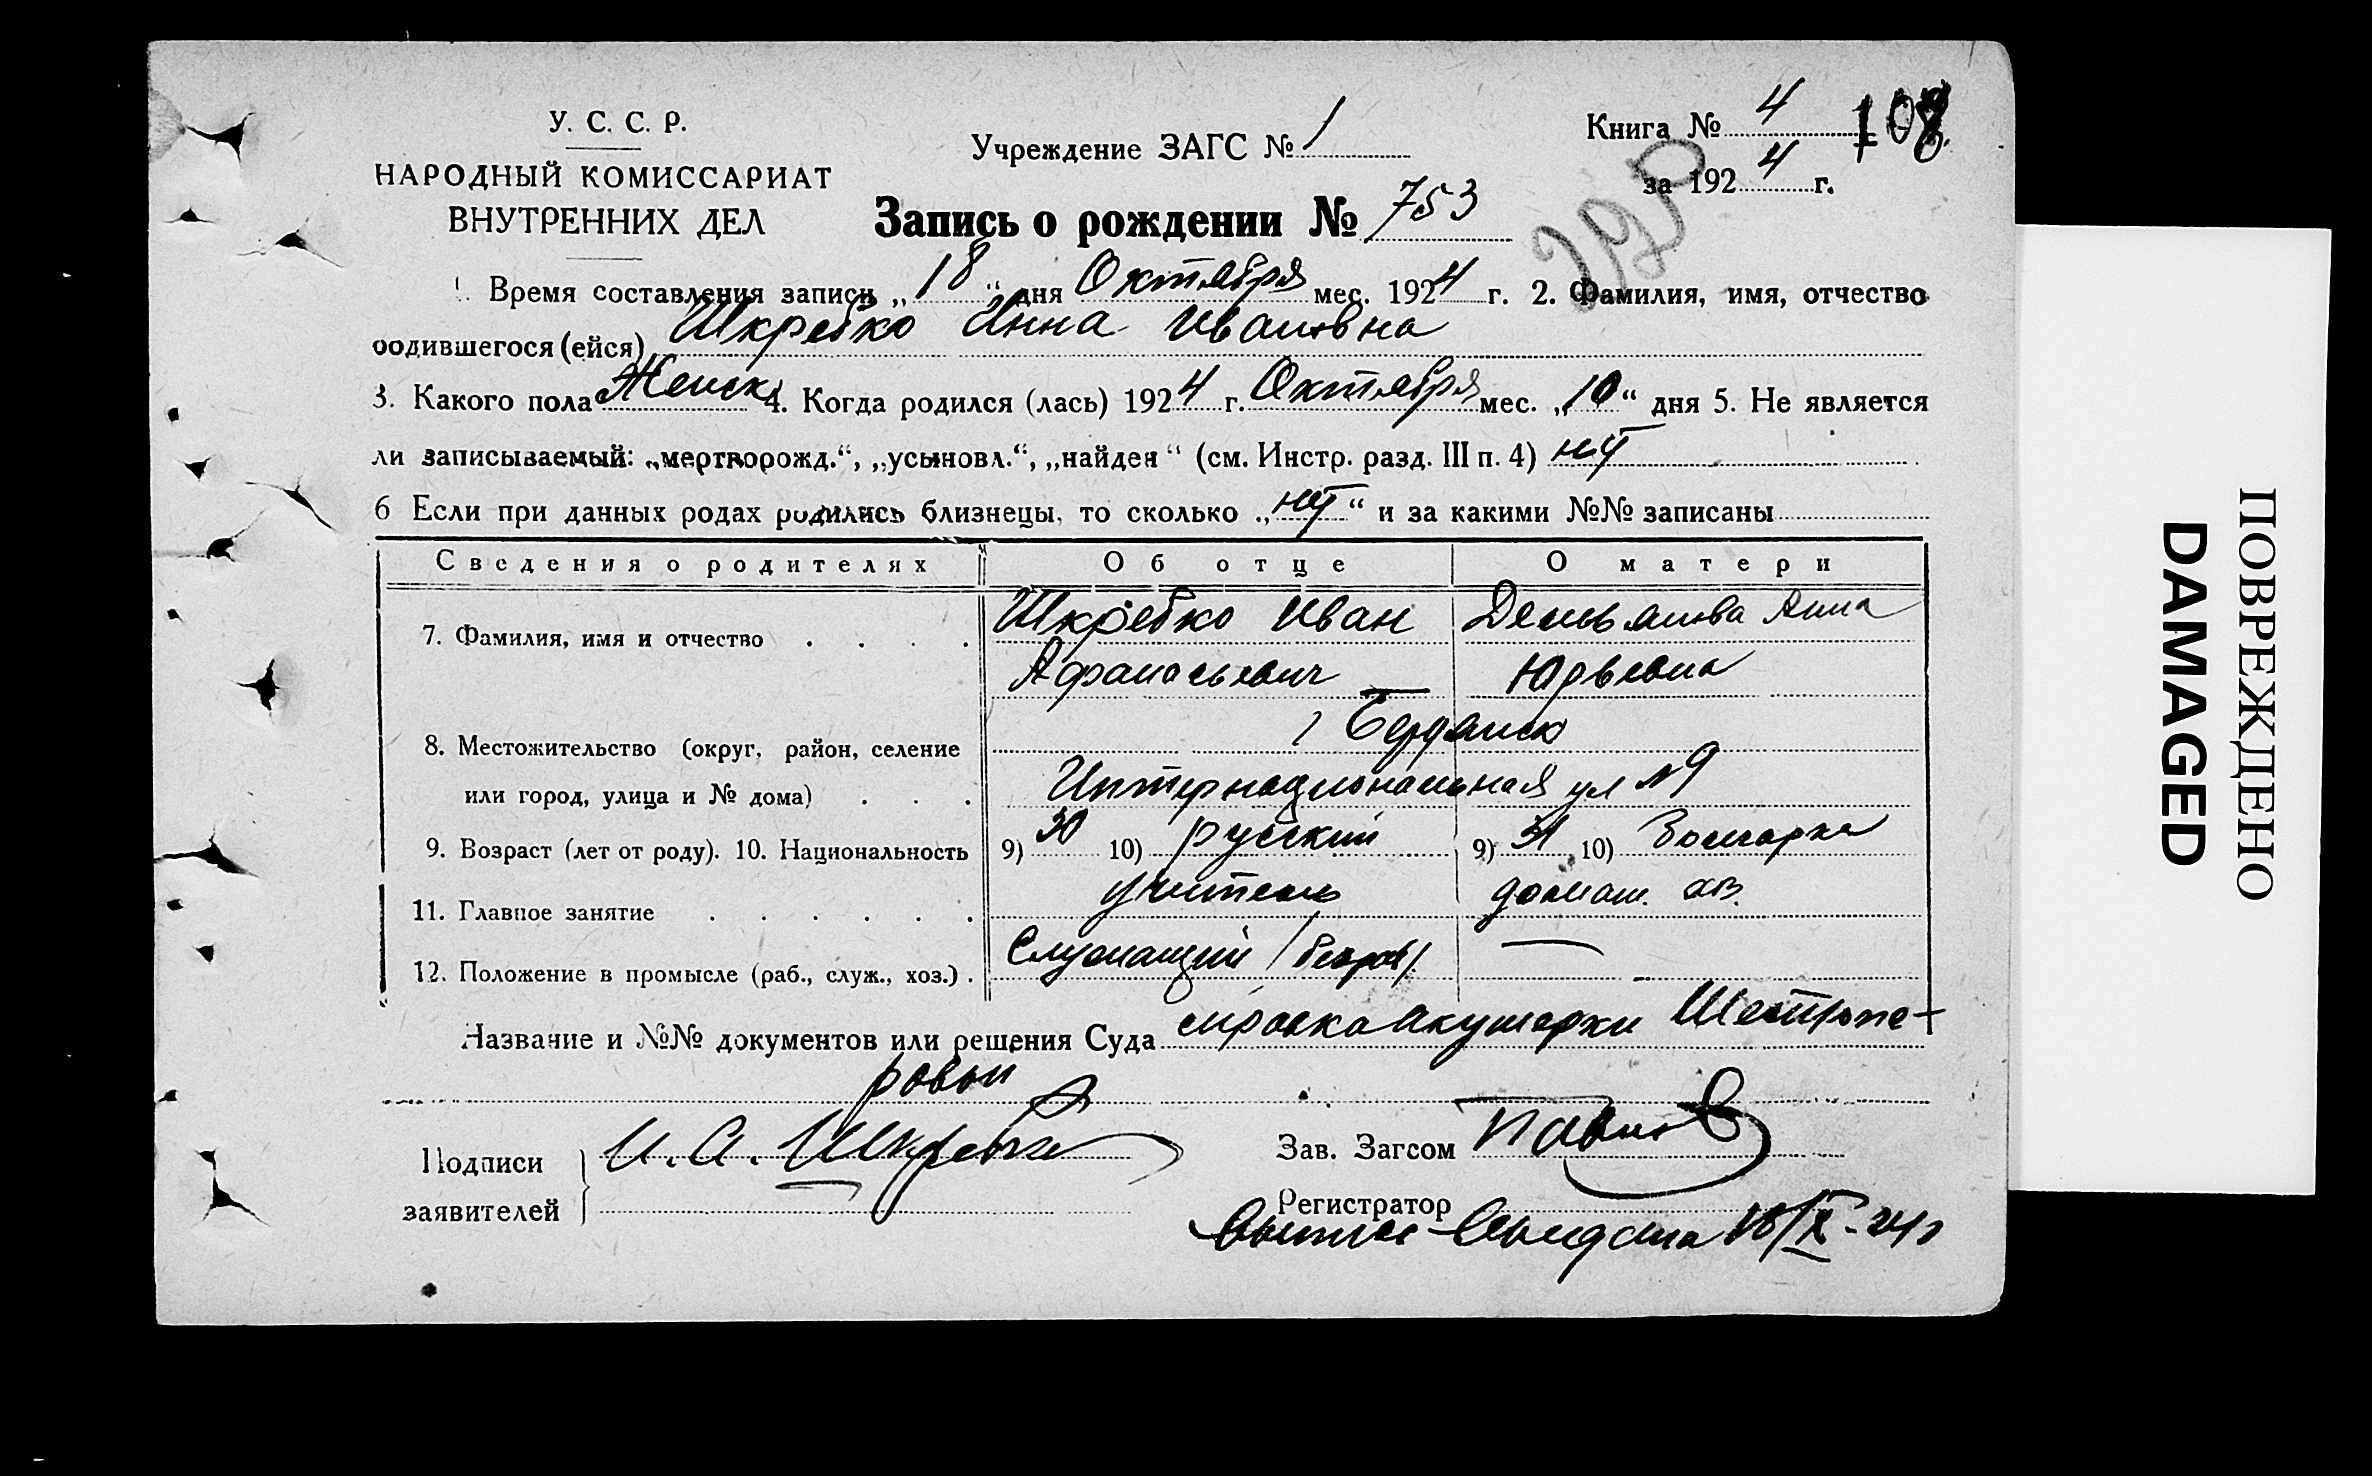 У. С. С. Р.
НАРОДНЫЙ КОМИССАРИАТ
ВНУТРЕННИХ ДЕЛ
Учреждение ЗАГС № 1
Книга № 4 108
за 1924 г.
Запись о рождении № 753
1. Время составления записи „18“ дня Октября мес. 1924 г. 2. Фамилия, имя, отчество
родившегося (ейся) Шкребко Инна Ивановна
3. Какого пола Женск 4. Когда родился (лась) 1924 г. Октября мес. „10“ дня 5. Не является
ли записываемый: „мертворожд.“, „усыновл.“, „найден“ (см. Инстр. разд. III п. 4) нет
6 Если при данных родах родились близнецы, то сколько „нет“ и за какими №№ записаны
Сведения о родителях Об отце О матери
7. Фамилия, имя и отчество Шкребко Иван Демьянова Анна
Афанасьевич — Юрьевна
8. Местожительство (округ, район, селение г Бердянск
или город, улица и № дома) Интернациональная ул № 9
9. Возраст (лет от роду). 10. Национальность 9) 30 10) русский 9) 31 10) Болгарка
11. Главное занятие учитель домаш. хоз.
12. Положение в промысле (раб., служ., хоз.) Служащий —
Название и №№ документов или решения Суда справка Акушерки
ровой
Подписи И. А. Шкребко Зав. Загсом
заявителей Регистратор
18/X-24г
ПОВРЕЖДЕНО
DAMAGED